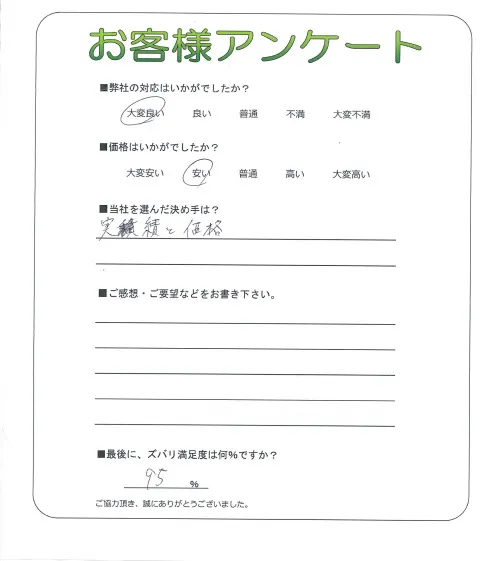 お客様アンケート
■弊社の対応はいかがでしたか？
大変良い 良い 普通 不満 大変不満
■価格はいかがでしたか？
大変安い 安い 普通 高い 大変高い
■当社を選んだ決め手は？
実績と価格
■ご感想・ご要望などをお書き下さい。
■最後に、ズバリ満足度は何%ですか？
95 %
ご協力頂き、誠にありがとうございました。